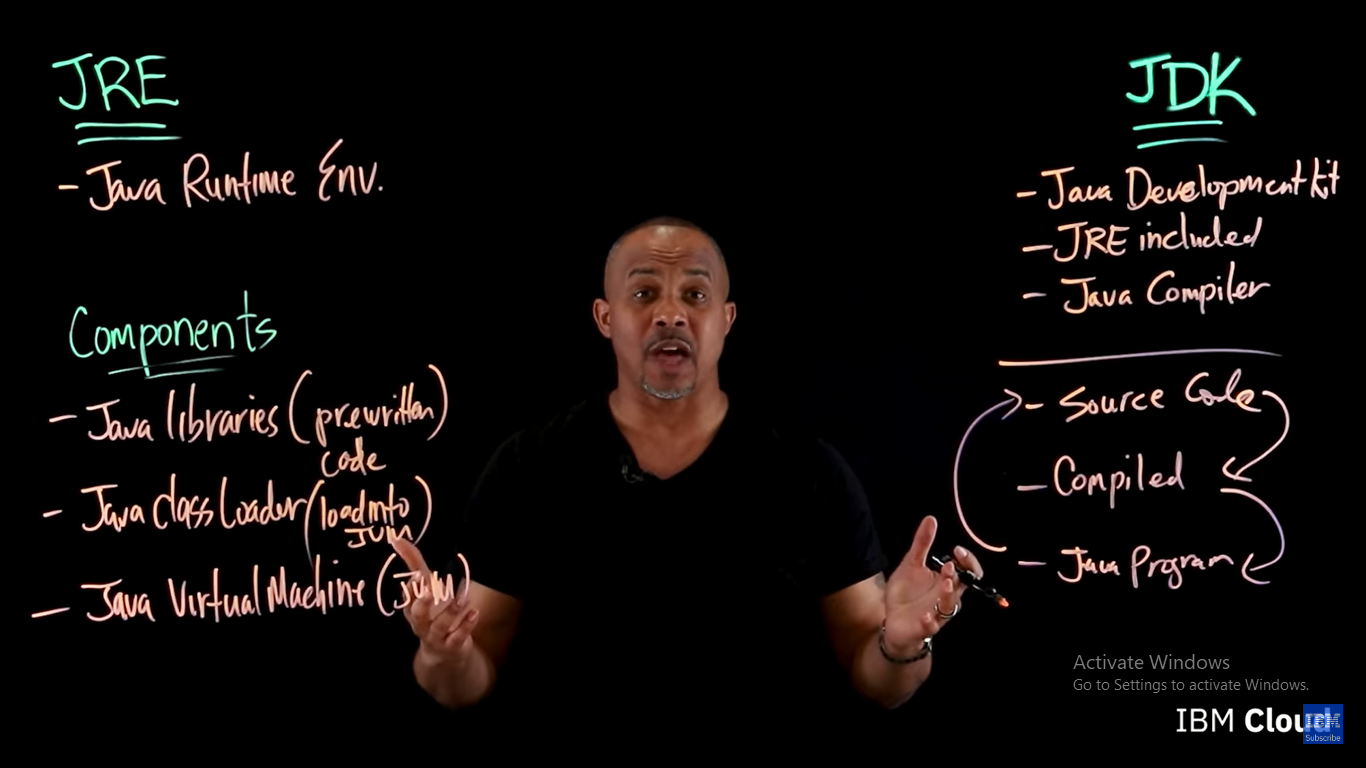 JRE
- Java Runtime Env.
Components
- Java libraries (prewritten)
code
- Java Class Loader (load into)
JVM
- Java Virtual Machine (JVM)
JDK
- Java Development Kit
- JRE included
- Java Compiler
- Source Code
- Compiled
- Java Program
Activate Windows
Go to Settings to activate Windows.
IBM Cloud
IBM
Subscribe